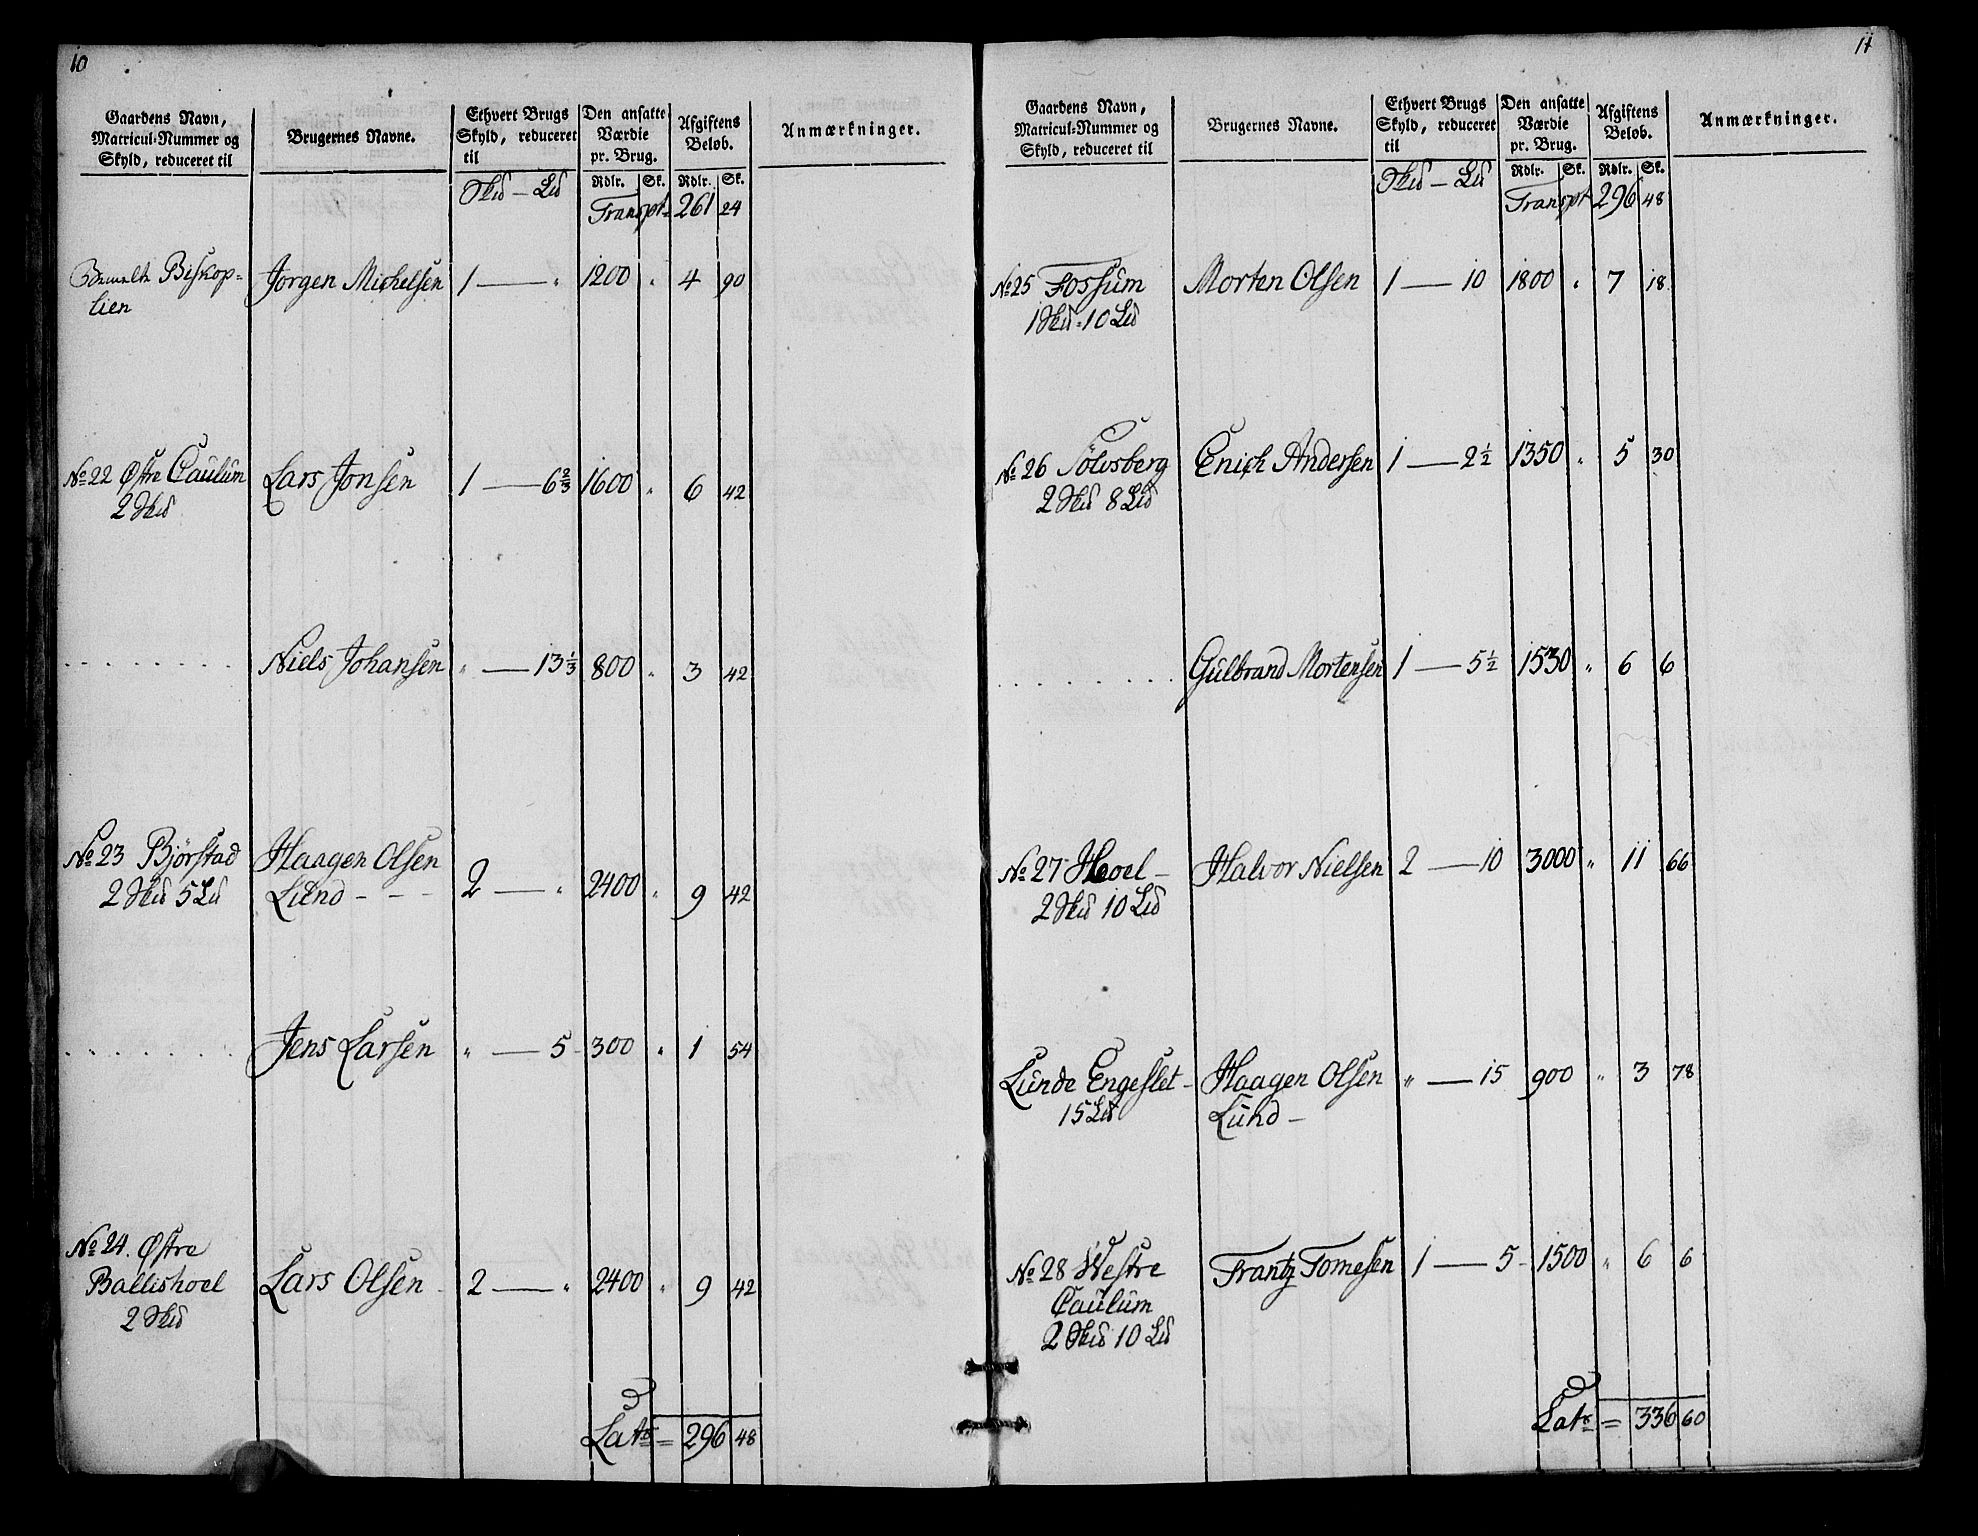 10
Gaardens Navn, Matricul-Nummer og Skyld, reduceret til | Brugernes Navne. | Ethvert Brugs Skyld, reduceret til | Den ansatte Værdie pr. Brug. | Afgiftens Beløb. | Anmærkninger.
Skd — Ld | Rdlr. Sk. | Rdlr. Sk.
Transpt. 261 24
Biskop-
lien | Jorgen Michelsen | 1 — " | 1200 " | 4 90
No 22 Østre Caulum | Lars Jonsen | 1 — 6 2/3 | 1600 " | 6 42
2 Skd
. . . . . . . . | Niels Johansen | " — 13 1/3 | 800 " | 3 42
No 23 Bjørstad | Haagen Olsen
2 Skd 5 Ld | Lund - - - | 2 — " | 2400 " | 9 42
. . . . . . . . | Jens Larsen | " — 5 - | 300 " | 1 54
No 24. Østre
Ballishoel | Lars Olsen - | 2 — " | 2400 " | 9 42
2 Skd
Latr = 296 48
11
Gaardens Navn, Matricul-Nummer og Skyld, reduceret til | Brugernes Navne. | Ethvert Brugs Skyld, reduceret til | Den ansatte Værdie pr. Brug. | Afgiftens Beløb. | Anmærkninger.
Skd — Ld | Rdlr. Sk. | Rdlr. Sk.
Transpt 296 48
No 25 Fossum | Morten Olsen | 1 — 10 | 1800 " | 7 18
1 Skd. 10 Ld
No 26 Solvsberg | Erich Andersen | 1 — 2 1/2 | 1350 " | 5 30
2 Skd 8 Ld
. . . . . . . . | Gulbrand Mortensen | 1 — 5 1/2 | 1530 " | 6 6
No 27 Hoel - | Halvor Nielsen | 2 — 10 | 3000 " | 11 66
2 Skd 10 Ld
Lunde Engeslet - | Haagen Olsen | " — 15 | 900 " | 3 78
15 Ld | Lund -
No 28 Westre | Frantz Tomesen | 1 — 5 - | 1500 " | 6 6
Caulum
2 Skd 10 Ld
Latr = 336 60